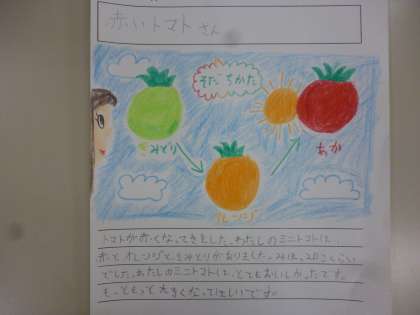 赤いトマトさん
そだちかた
きみどり
あか
オレンジ
トマトが赤くなってきました。わたしのミニトマトは、
赤とオレンジときみどりがありました。みは、2こくらい
でした。わたしのミニトマトは、とてもおいしかったです。
もっともっと大きくなってほしいです。